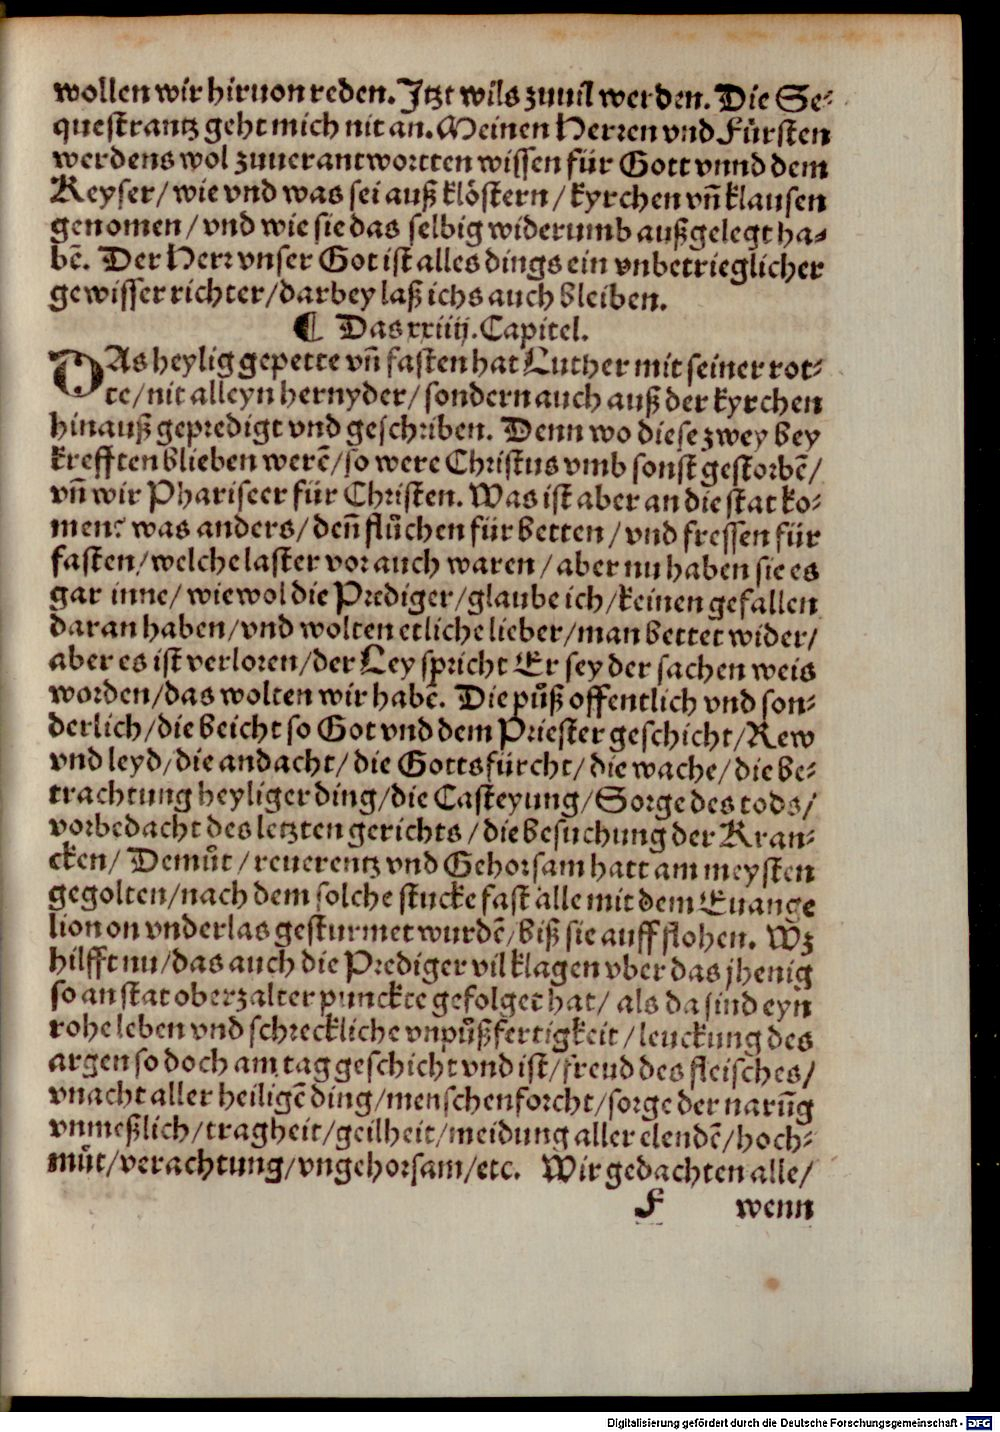 wollen wir hiruon reden. Jtzt wils zuuil werden. Die Se⸗
questrantz geht mich nit an. Meinen Herren vnd Fürsten
werdens wol zuuerantwortten wissen für Gott vnnd dem
Keyser/ wie vnd was sei auß klöstern/ kyrchen vñ klausen
genomen/ vnd wie sie das selbig widerumb außgelegt ha⸗
bẽ. Der Herr vnser Got ist alles dings ein vnbetrieglicher
gewisser richter/ darbey laß ichs auch bleiben.
¶ Das xxiiij. Capitel.
DAs heylig gepette vñ fasten hat Luther mit seiner rot⸗
te/ nit alleyn hernyder/ sondern auch auß der kyrchen
hinauß gepredigt vnd geschriben. Denn wo diese zwey bey
krefften blieben werẽ/ so were Christus vmb sonst gestorbẽ/
vñ wir Phariseer für Christen. Was ist aber an die stat ko⸗
men? was anders/ deñ flůchen für betten/ vnd fressen für
fasten/ welche laster vor auch waren/ aber nu haben sie es
gar inne/ wie wol die Prediger/ glaube ich/ keinen gefallen
daran haben/ vnd wolten etliche lieber/ man bettet wider/
aber es ist verloren/ der Ley spricht Er sey der sachen weis
worden/ das wolten wir habẽ. Die půß offentlich vnd son⸗
derlich/ die beicht so Got vnd dem Priester geschicht/ Rew
vnd leyd/ die andacht/ die Gottsfürcht/ die wache/ die be⸗
trachtung heyliger ding/ die Casteyung/ Sorge des tods/
vorbedacht des letzten gerichts/ die besuchung der Kran⸗
cken/ Demůt/ reuerentz vnd Gehorsam hatt am meysten
gegolten/ nach dem solche stucke fast alle mit dem Euange
lion on vnderlas gesturmet wurdẽ/ biß sie auff flohen. Wz
hilfft nu/ das auch die Prediger vil klagen vber das jhenig
so an stat oberzalter punckte gefolget hat/ als da sind eyn
rohe leben vnd schreckliche vnpůßfertigkeit/ leuckung des
argen so doch am tag geschicht vnd ist/ freud des fleisches/
vnacht aller heiligẽ ding/ menschenforcht/ sorge der narũg
vnmeßlich/ tragheit/ geilheit/ meidung aller elendẽ/ hoch⸗
můt/ verachtung/ vngehorsam/ etc. Wir gedachten alle/
F wenn
Digitalisierung gefördert durch die Deutsche Forschungsgemeinschaft - DFG